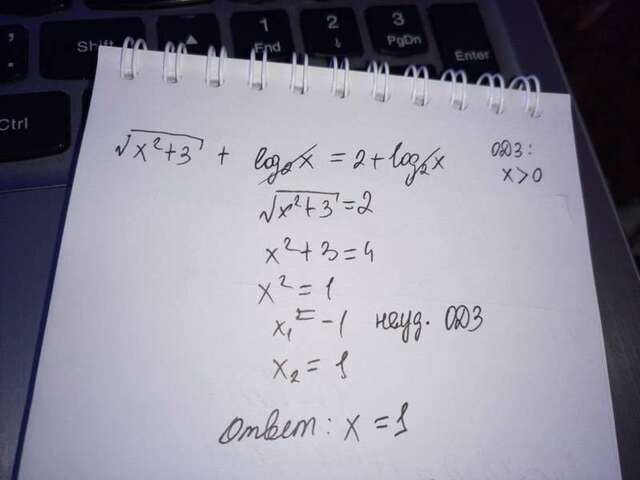 Shift
1
End
2
↓
3
PgDn
Enter
Ctrl
√x²+3 + log₂x = 2 + log₂x ОДЗ:
x>0
√x²+3 = 2
x²+3=4
x²=1
x₁=-1 неуд. ОДЗ
x₂=1
Ответ: x=1